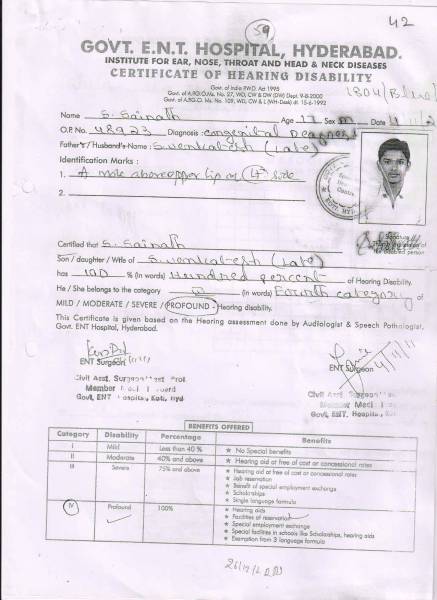 59
42
GOVT. E.N.T. HOSPITAL, HYDERABAD.
INSTITUTE FOR EAR, NOSE, THROAT AND HEAD & NECK DISEASES
CERTIFICATE OF HEARING DISABILITY
Govt. of India P.W.D. Act 1995
Govt. of A.P.G.O.Ms. No. 27, WD, CW & DW (DW) Dept. 9-8-2000
Govt. of A.P.G.O. Ms. No. 109, WD, CW & L (WH-Desk) dt. 15-6-1992
1804/Blue/
Name S. Sainath Age 17 Sex m
O.P. No. 48923 Diagnosis Congenital Deafness
Father's / Husband's Name : S. Venkatesh (Late)
Identification Marks :
1. A mole above upper lip on (Lt) side
2.
Signature
disabled person
Certified that S. Sainath
Son / daughter / Wife of S. Venkatesh (Late)
has 100 % (in words) Hundred percent of Hearing Disability.
He / She belongs to the category IV (in words) Fourth category of
MILD / MODERATE / SEVERE / PROFOUND - Hearing disability.
This Certificate is given based on the Hearing assessment done by Audiologist & Speech Pathologist,
Govt. ENT Hospital, Hyderabad.
ENT Surgeon
ENT Surgeon
4/11/11
Civil Asst. Surgeon
Member
Govt. ENT Hospital, Koti, Hyd
Civil Asst. Surgeon
Member Medi
Govt. ENT. Hospital, Koti
BENEFITS OFFERED
Category Disability Percentage Benefits
I Mild Less than 40 % ★ No Special benefits
II Moderate 40% and above ★ Hearing aid at free of cost or concessional rates
III Severe 75% and above ★ Hearing aid at free of cost or concessional rates
★ Job reservation
★ Benefit of special employment exchange
★ Scholarships
★ Single language formula
IV Profound 100% ★ Hearing aids
★ Facilities of reservation
★ Special employment exchange
★ Special facilities in schools like Scholarships, hearing aids
★ Exemption from 3 language formula